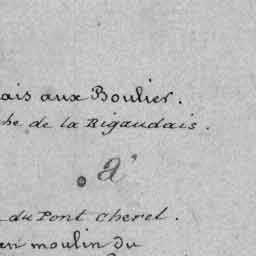 ais aux Boulier.
che de la Rigaudais.
a
du Pont Cherel.
en moulin du